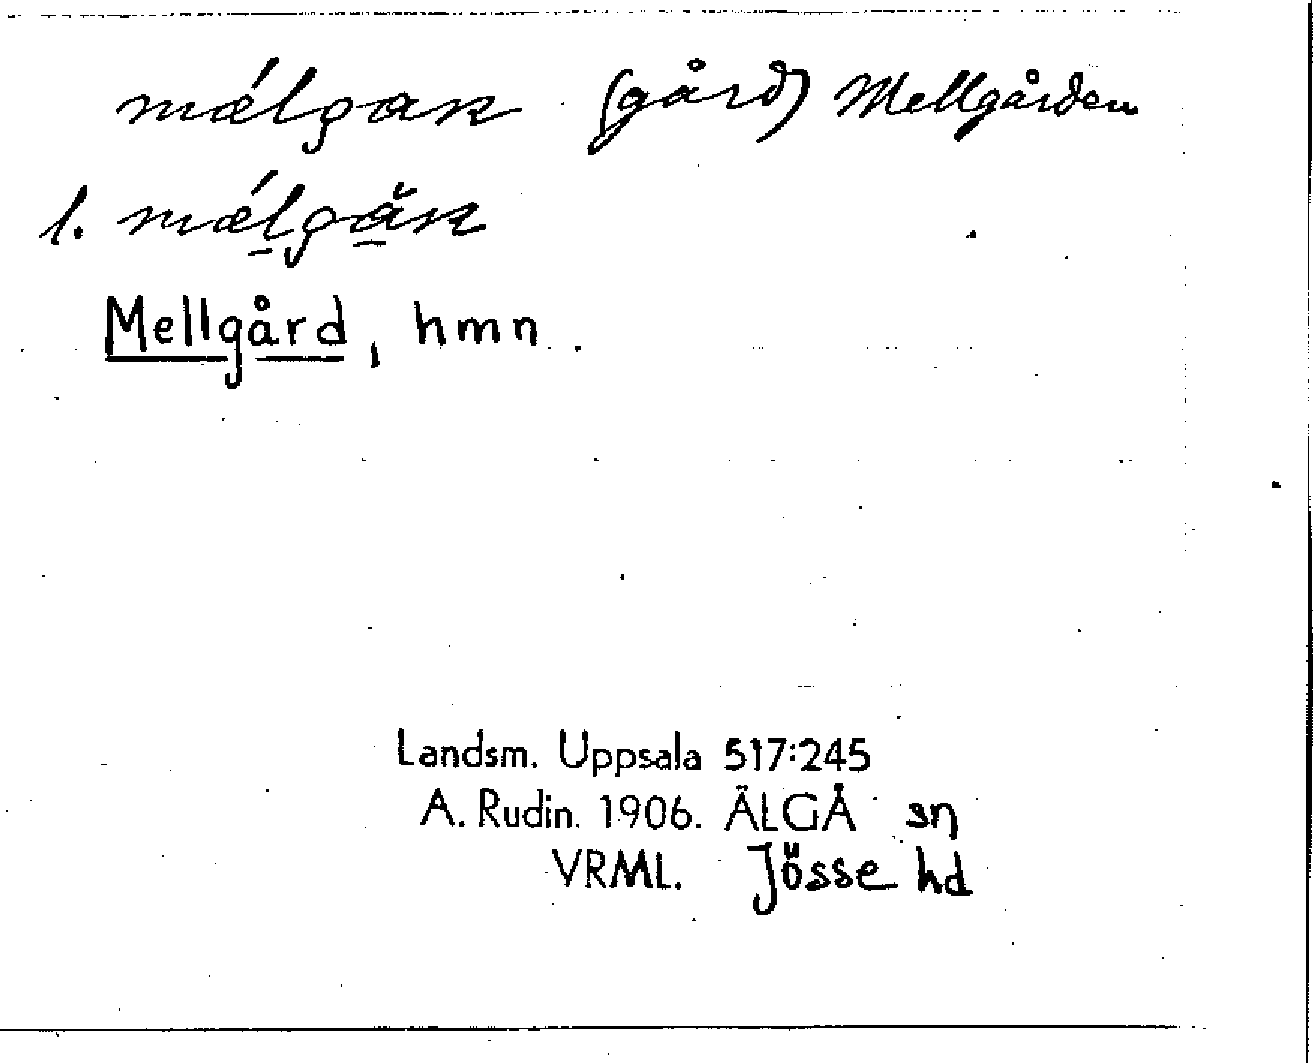 mǽlgaɴ (gård) Mellgården
1. mǽlgăɴ
Mellgård, hmn.
Landsm. Uppsala 517:245
A. Rudin. 1906. ÄLGÅ sn
VRML. Jösse hd